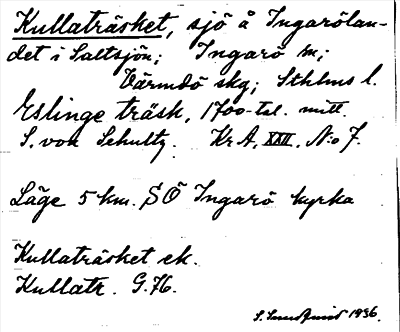 Kullaträsket, sjö å Ingarölan-
det i Saltsjön; Ingarö sn;
Värmdö skg; Sthlms l.
Eslinge träsk, 1700-tal. mitt.
S. von Schultz. Kr A. XXII. N:o 7.
Läge 5 km. SÖ Ingarö kyrka
Kullaträsket ek.
Kullatr. G.76.
1936.